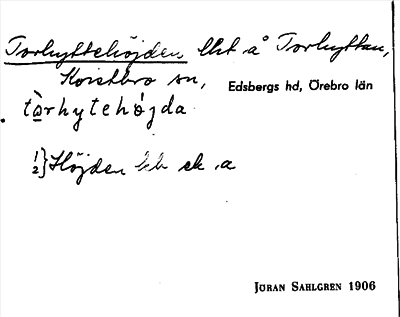 Torhyttehöjden llt å Torhyttan,
Knistbro sn, Edsbergs hd, Örebro län
tὰrhytehö́jda
½} Höjden lh sk .a
JÖRAN SAHLGREN 1906